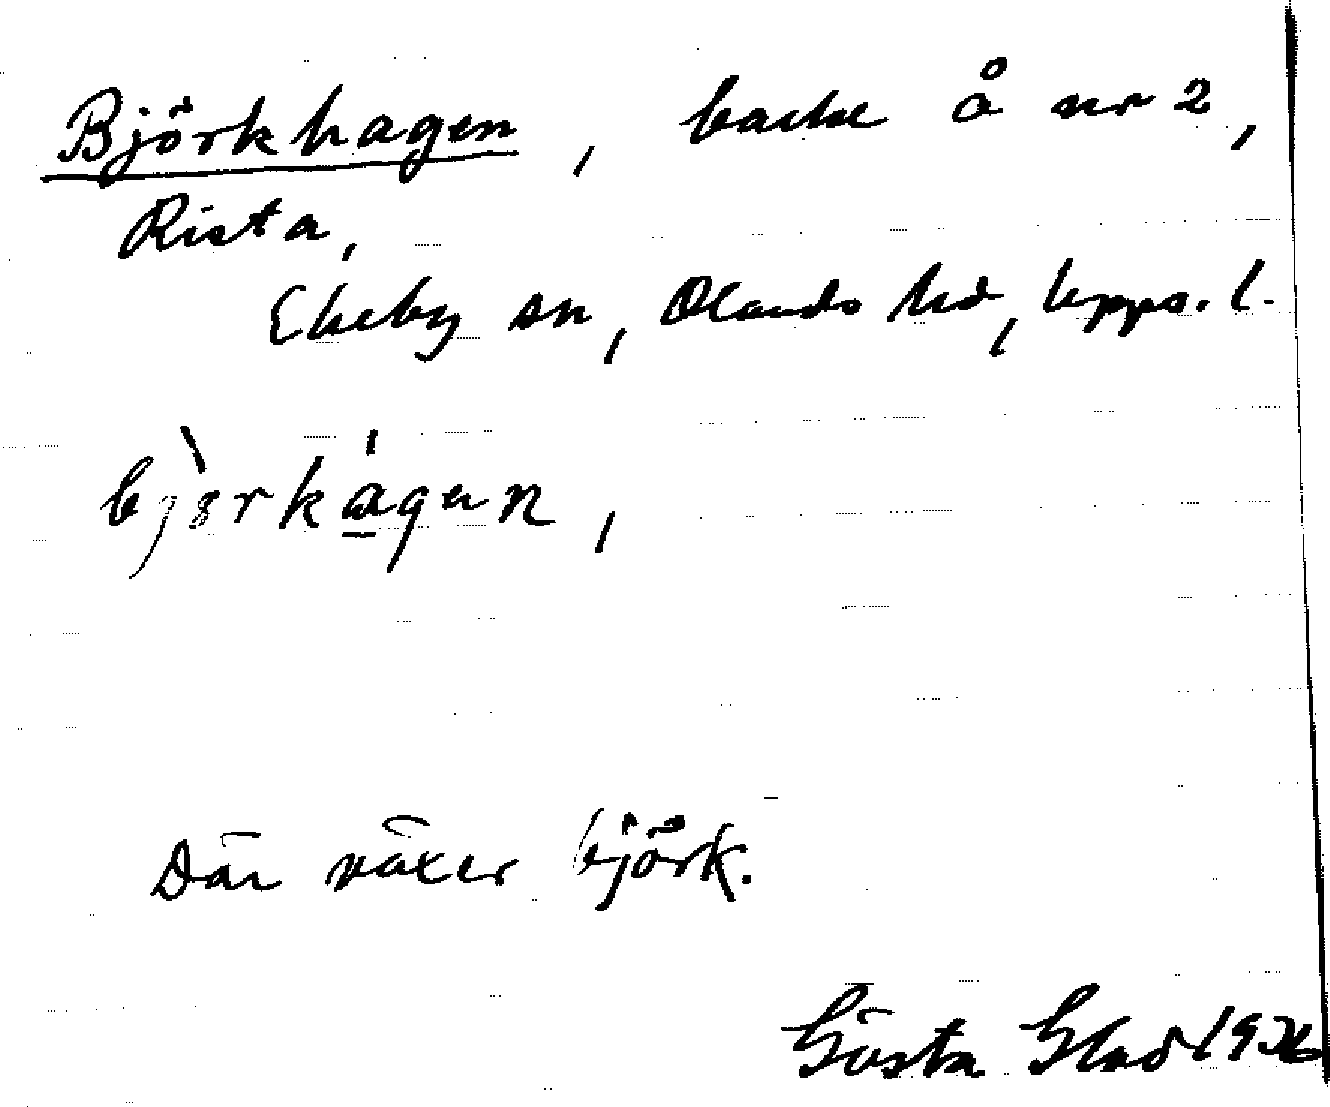 Björkhagen, backe å nr 2,
Rista,
Ekeby sn, Olands hd, Upps. l.
bjòrkágen,
Där växer björk.
Gösta Glad